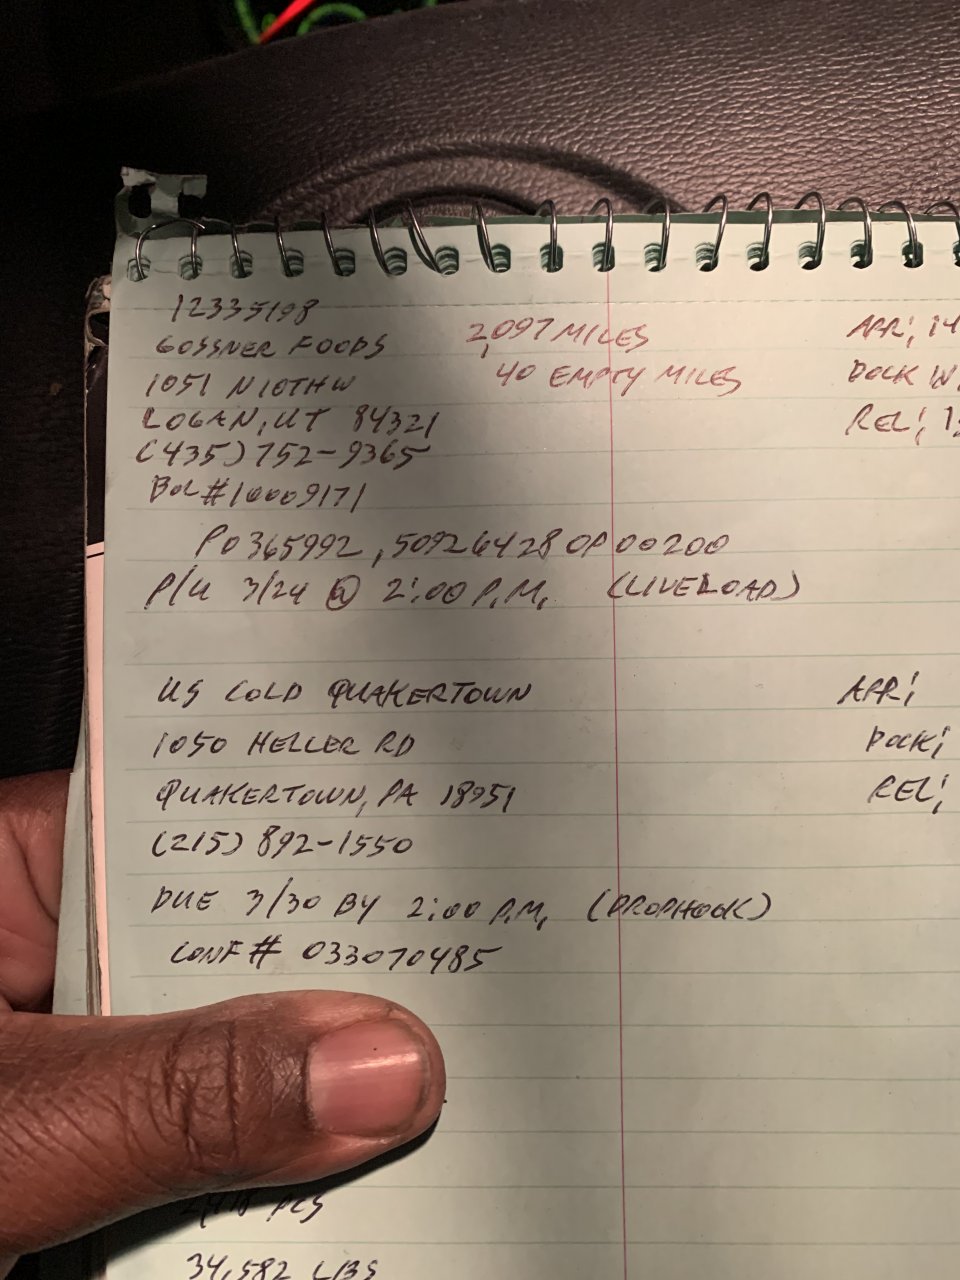 12335198
GOSSNER FOODS 2,097 MILES ARR; 14
1051 N10THW 40 EMPTY MILES DOCK W.
LOGAN, UT 84321 REL;
(435) 752-9365
BOL #10009171
PO 365992, 50926428 OP 00200
P/U 3/24 @ 2:00 P.M. (LIVELOAD)
US COLD QUAKERTOWN ARR;
1050 HELLER RD DOCK;
QUAKERTOWN, PA 18951 REL;
(215) 892-1550
DUE 3/30 BY 2:00 P.M. (DROPHOOK)
CONF# 033070485
PCS
34,582 LBS